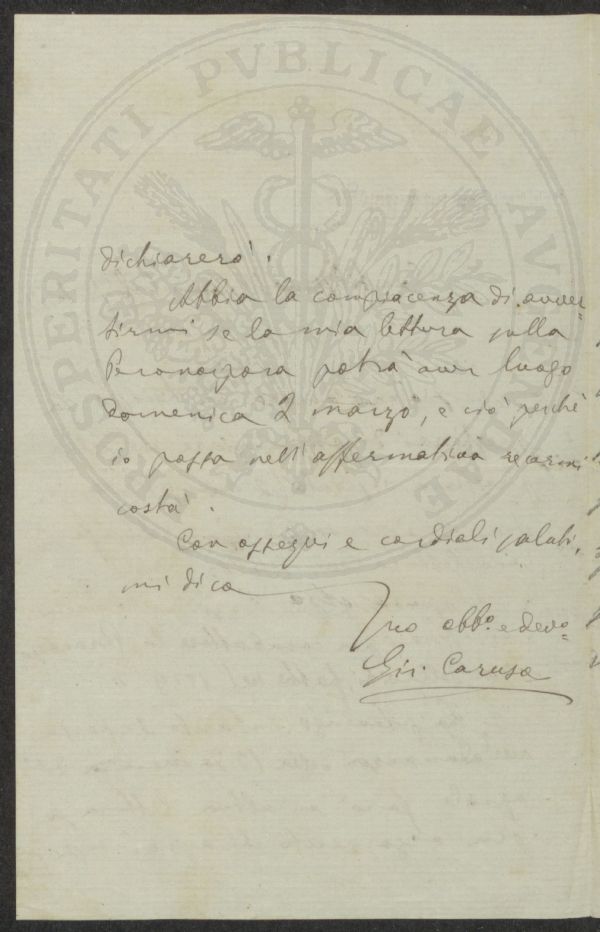 PROSPERITATI PVBLICAE AVGENDAE
dichiarerò.
Abbia la compiacenza di avver=
tirmi se la mia lettura sulla
Peronospora potrà aver luogo
Domenica 2 marzo, e ciò perchè
io possa nell'affermativa recarmi
costà.
Con ossequi e cordiali saluti,
mi dica
Suo obb.o e dev.o
Gir. Caruso